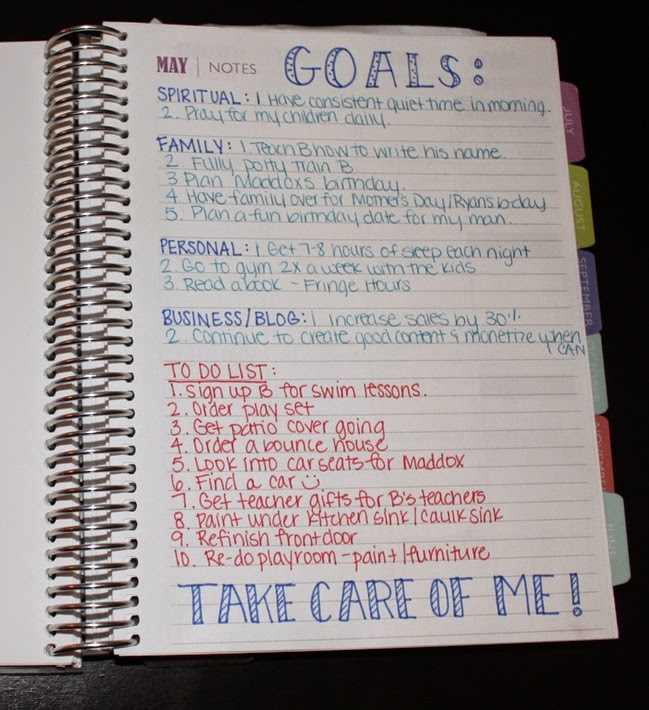 MAY | NOTES GOALS:
SPIRITUAL: 1. Have consistent quiet time in morning.
2. Pray for my children daily.
FAMILY: 1 Teach B how to write his name.
2. Fully potty train B.
3 Plan Maddoxs birthday.
4 Have family over for Mome's Day/Ryans bday
5. Plan a fun birthday date for my man.
PERSONAL: 1 Get 7-8 hours of sleep each night
2. Go to gym 2x a week with the kids
3. Read a book - Fringe Hours
BUSINESS/BLOG: 1 Increase sales by 30%
2. Continue to create good content & monetize when
I CAN
TO DO LIST:
1. Sign up B for swim lessons.
2. Order play set
3. Get patio cover going
4. Order a bounce house
5. Look into car seats for Maddox
6. Find a car
7. Get teacher gifts for B's teachers
8. Paint under kitchen sink/caulk sink
9. Refinish front door
10. Re-do playroom - paint/furniture
TAKE CARE OF ME!
JULY
AUGUST
SEPTEMBER